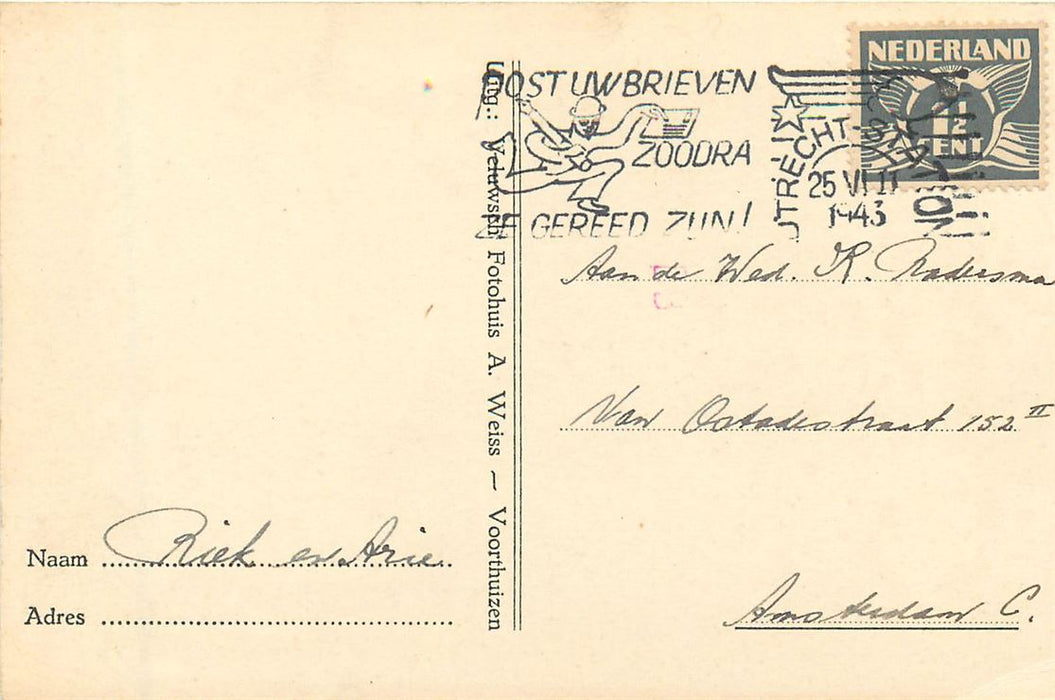 POST UW BRIEVEN
ZOODRA
GEREED ZIJN!
UTRECHT-STATION
25 VIII
1943
NEDERLAND
1½
CENT
Aan de Wed. K. Radersma
Van Ostadestraat 152 II
Amsterdam C.
Uitg.: Veluwsch Fotohuis A. Weiss — Voorthuizen
Naam Riek en Arie
Adres